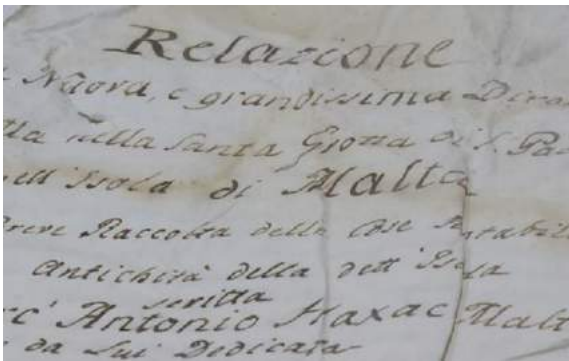 Relazione
Nuova, e grandissima Divo
lla nella Santa Grotta di S. Pa
ell'Isola di Malta
Breve Raccolta delle Cose Notabili
Antichità della dett'Isola
scritta
Antonio Haxac Malt
e da Lui Dedicata